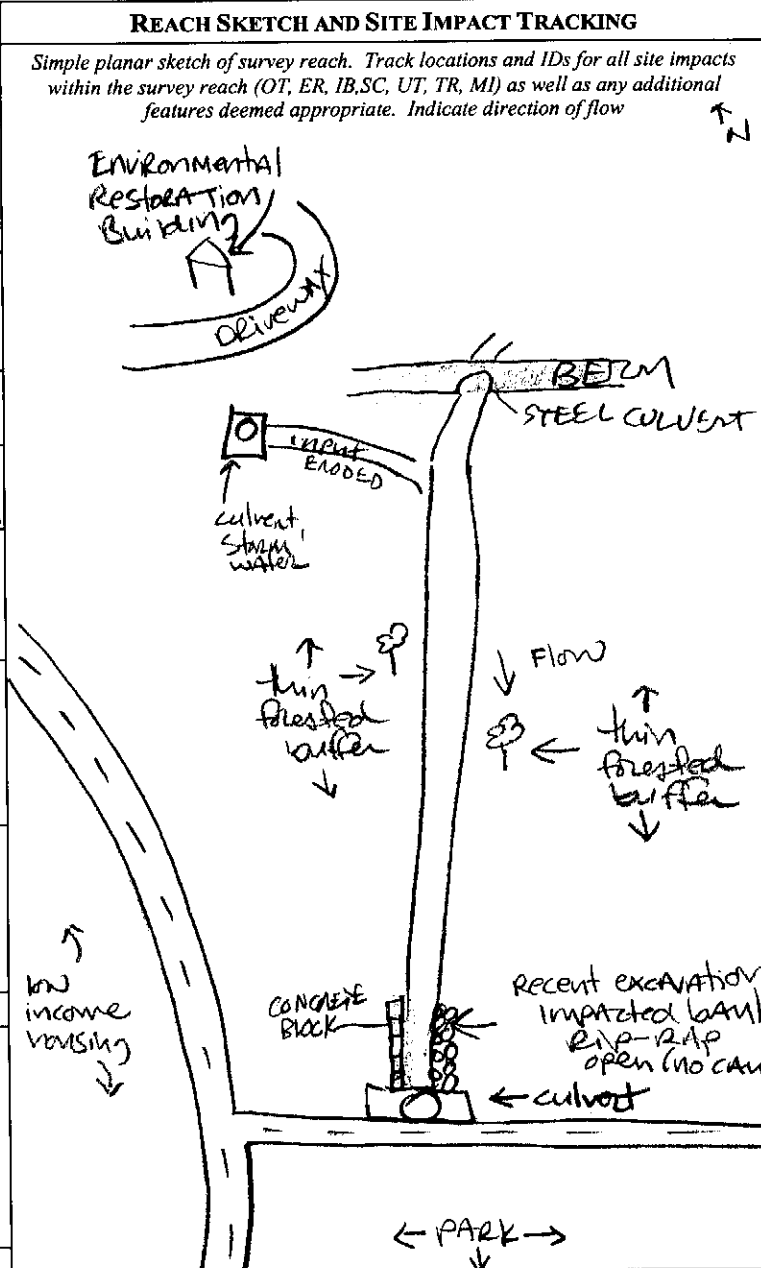 REACH SKETCH AND SITE IMPACT TRACKING
Simple planar sketch of survey reach. Track locations and IDs for all site impacts
within the survey reach (OT, ER, IB,SC, UT, TR, MI) as well as any additional
features deemed appropriate. Indicate direction of flow
N
Environmental
Restoration
Building
DRIVEWAY
BERM
STEEL CULVERT
input
ERODED
culvert,
storm
water
Flow
thin
forested
buffer
thin
forested
buffer
low
income
housing
CONCRETE
BLOCK
Recent excavation
impacted bank
RIP-RAP
open (no
culvert
PARK